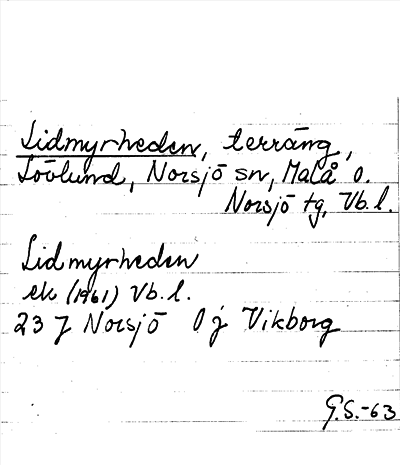 Lidmyrheden, terräng,
Lövlund, Norsjö sn, Malå o.
Norsjö tg, Vb.l.
Lidmyrheden
ek (1961) Vb.l.
23 J Norsjö 0 j Vikborg
G.S.-63